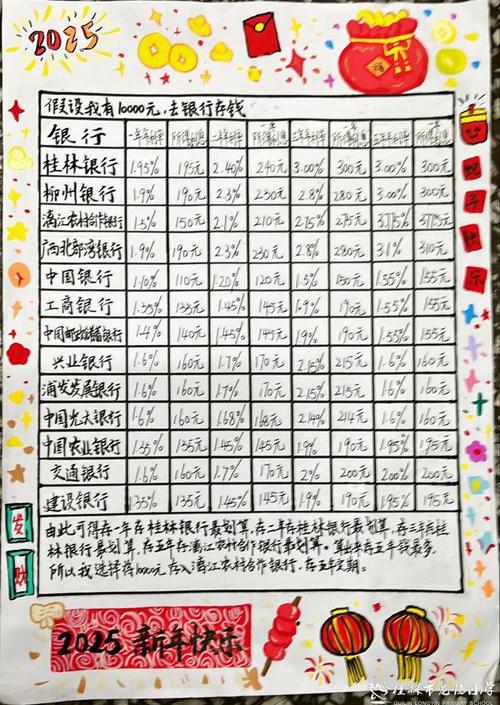 2025
福
假设我有10000元,去银行存钱
银行 一年利率 所得利息 二年利率 所得利息 三年利率 所得利息 五年利率
桂林银行 1.95% 195元 2.40% 240元 3.00% 300元 3.00% 300元
柳州银行 1.9% 190元 2.3% 230元 2.8% 280元 3.00% 300元
漓江农村合作银行 1.5% 150元 2.1% 210元 2.75% 275元 3.775% 377.5元
广西北部湾银行 1.9% 190元 2.3% 230元 2.8% 280元 3.1% 310元
中国银行 1.10% 110元 1.20% 120元 1.5% 150元 1.55% 155元
工商银行 1.35% 135元 1.45% 145元 1.9% 190元 1.55% 155元
中国邮政储蓄银行 1.4% 140元 1.45% 145元 1.9% 190元 1.55% 155元
兴业银行 1.6% 160元 1.7% 170元 2.15% 215元 1.6% 160元
浦发发展银行 1.6% 160元 1.7% 170元 2.15% 215元 1.6% 160元
中国光大银行 1.6% 160元 1.68% 168元 2.14% 214元 1.6% 160元
中国农业银行 1.35% 135元 1.45% 145元 1.9% 190元 1.95% 195元
交通银行 1.6% 160元 1.7% 170元 2% 200元 2.00% 200元
建设银行 1.35% 135元 1.45% 145元 1.9% 190元 1.95% 195元
由此可得存一年在桂林银行最划算,存二年存桂林银行最划算,存三年存桂
林银行最划算,存五年存漓江农村合作银行最划算。算出来存五年钱最多,
所以我选择将10000元存入漓江农村合作银行,存五年定期。
蛇
年
快
乐
发
财
2025 新年快乐
桂林市龙隐小学
GUILIN LONGYIN PRIMARY SCHOOL